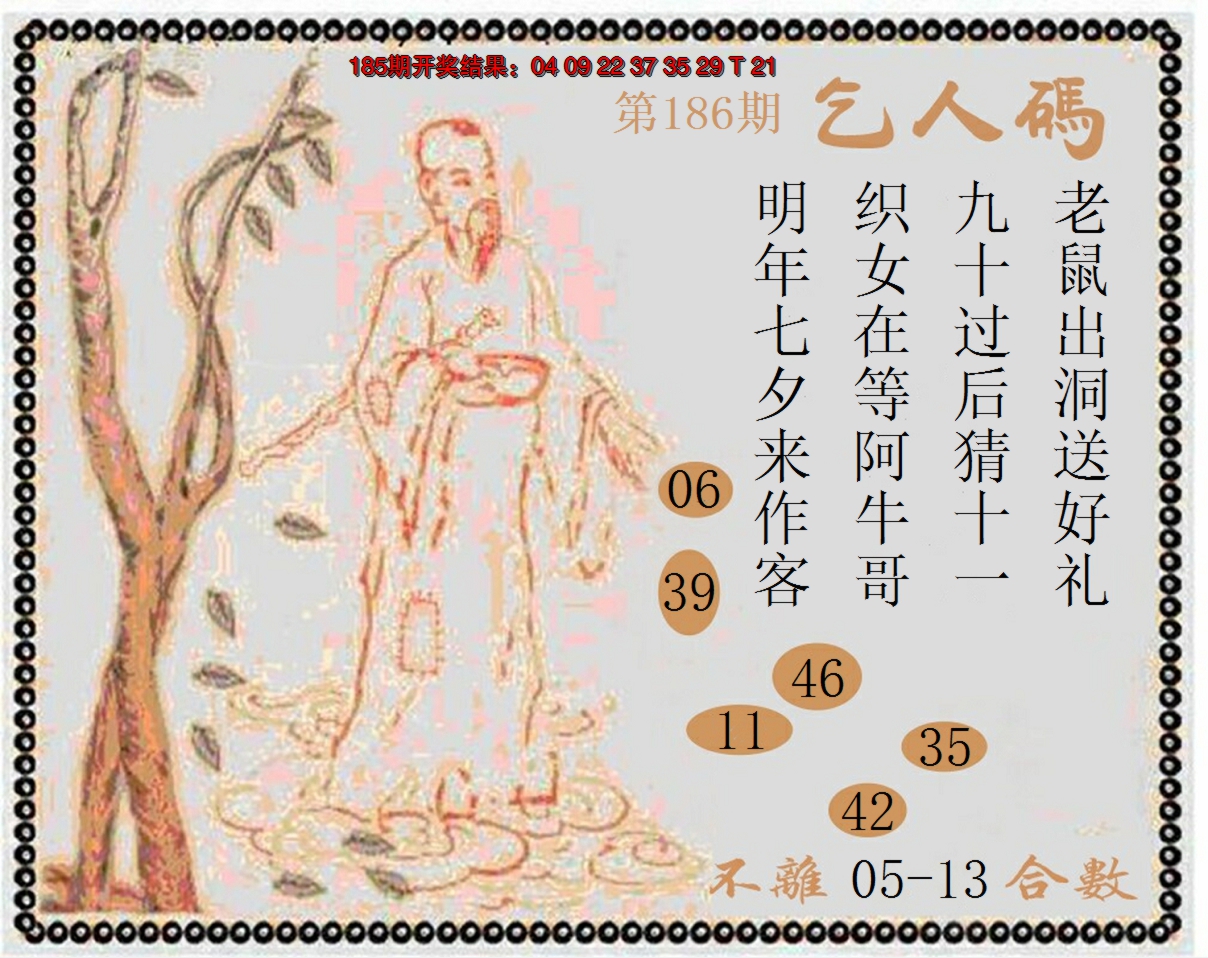 185期开奖结果：04 09 22 37 35 29 T 21
第186期 乞人碼
老鼠出洞送好礼
九十过后猜十一
织女在等阿牛哥
明年七夕来作客
06
39
46
11
35
42
不離 05-13 合數